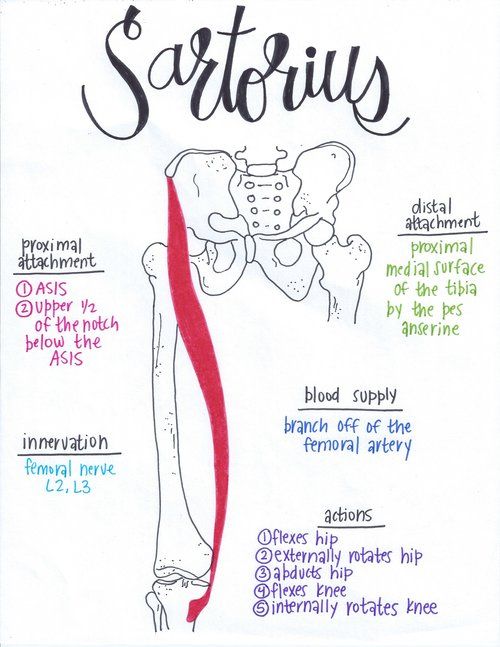 Sartorius
proximal
attachment
① ASIS
② upper 1/2
of the notch
below the
ASIS
distal
attachment
proximal
medial surface
of the tibia
by the pes
anserine
blood supply
branch off of the
femoral artery
innervation
femoral nerve
L2, L3
actions
① flexes hip
② externally rotates hip
③ abducts hip
④ flexes knee
⑤ internally rotates knee